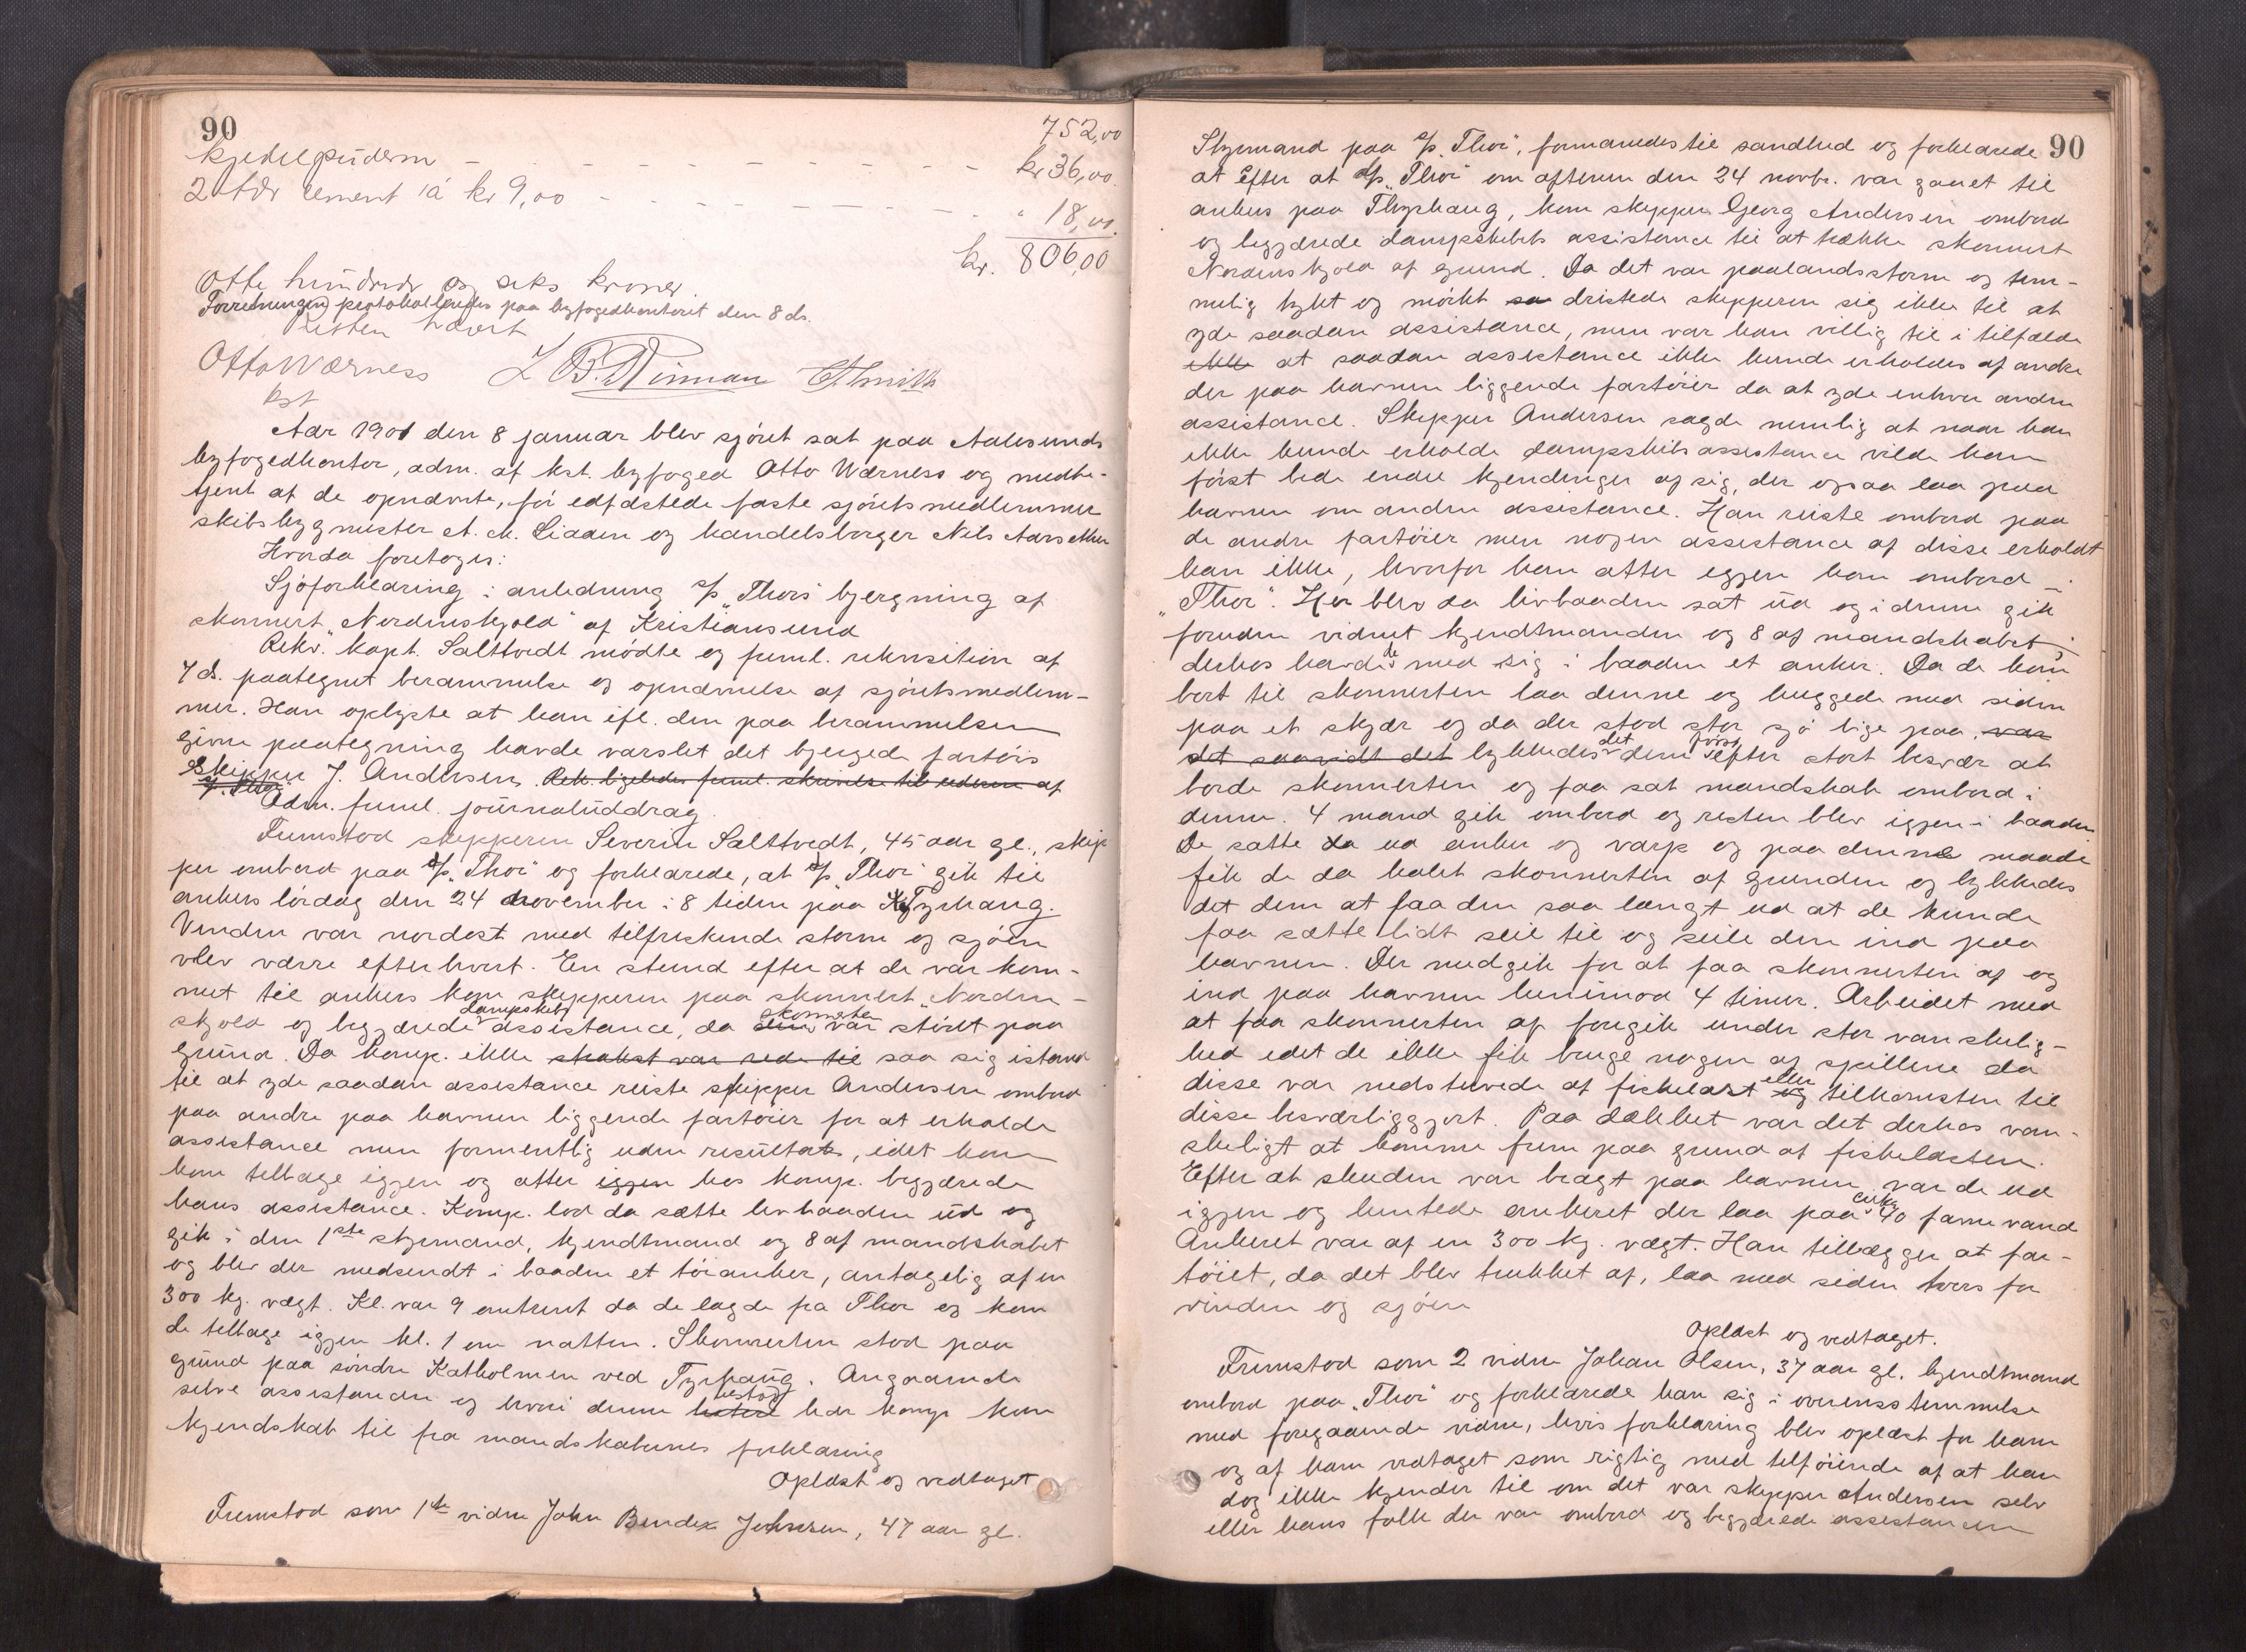 90
752,00
Kjedelpüdern - - - - - - - - - - kr 36,00.
2 tdr cement á kr 9,00 - - - - - - - - " 18,00.
kr. 806,00
Otte hündrede og seks kroner.
Forretningen protokolleredes paa byfogedkontoret den 8 ds.
Retten hævet
Otto Wærness
kst
Aar 1901 den 8 januar blev sjöret sat paa Aalesunds
byfogedkontor, adm. af kst. byfoged Otto Wærness og medbe-
tjent af de opnævnte, för edfæstede faste sjöretsmedlemmer
skibsbygmester A. M. Liaaen og handelsborger Nils Aarsæther
Hvorda foretoges:
Sjöforklaring i anledning s/s "Thors" bjergning af
skonnert "Nordenskjold" af Kristiansund
Rekv. kapt. Salttvedt mödte og freml. rekvisition af
7 ds. paategnet berammelse og opnævnelse af sjöretsmedlem-
mer. Han oplyste at han ifl. den paa berammelsen
givne paategning havde varslet det bjergede fartöis
skipper J. Andersen. Rekv. ligeledes freml. skrivelse til rederen af
s/s. Thor
Adm. freml. journalüddrag.
Fremstod skipperen Severin Salttvedt, 45 aar gl., skip-
per ombord paa s/s "Thor" og forklarede, at s/s "Thor" gik til
ankers lördag den 24 november i 8 tiden paa Tyrhaug.
Vinden var nordost med tilfriskende storm og sjöen
blev værre efterhvert. En stund efter at de var kom-
met til ankers kom skipperen paa skonnert "Norden-
skjold og begjærede dampskibs assistance, da skonnerten var stödt paa
gründ. Da komp. ikke straks var rede til saa sig istand
til at yde saadan assistance reiste skipper Andersen ombord
paa andre paa havnen liggende fartöier for at erholde
assistance men formentlig uden resültat, idet han
kom tilbage igjen og atter igjen hos komp. begjærede
hans assistance. Komp. lod da sætte livbaaden üd og
gik i den 1ste styrmand, kjendtmand og 8 af mandskabet
og blev der medsendt i baaden et töianker, antagelig af en
300 kg. vægt. Kl. var 9 omtrent da de lagde fra Thor og kom
de tilbage igjen kl. 1 om natten. Skonnerten stod paa
gründ paa söndre Katholmen ved Tyrhaüg. Angaaende
selve assistancen og hvori denne bestod har komp kun
kjendskab til fra mandskabernes forklaring
Oplæst og vedtaget
Fremstod som 1ste vidne John Bendix Johnsen, 47 aar gl.
90
Styrmand paa s/s "Thor", formanedes til sandhed og forklarede
at Efter at s/s "Thor" om aftenen den 24 novbr. var gaaet til
ankers paa Thyrhaug, kom skipper Georg Andersen ombord
og begjærede dampskibets assistance til at trække skonnert
Nordenskjold af grund. Da det var paalandsstorm og tem-
melig tykt og mörkt saa dristede skipperen sig ikke til at
yde saadan assistance, men var han villig til i tilfælde
ikke at saadan assistance ikke kunde erholdes af andre
der paa havnen liggende fartöier da at yde enhver anden
assistance. Skipper Andersen sagde nemlig at naar han
ikke kunde erholde dampskibsassistance vilde han
först bede endel kjendinger af sig, der ogsaa laa paa
havnen om anden assistance. Han reiste ombord paa
de andre fartöier men nogen assistance af disse erholdt
han ikke, hvorfor han atter igjen kom ombord i
"Thor". Her blev da livbaaden sat üd og i denne gik
foruden vidnet kjendtmanden og 8 af mandskabet,
derhos havde de med sig i baaden et anker. Da de kom
bort til skonnerten laa denne og huggede med siden
paa et skjær og da der stod stor sjö lige paa, var
det saavidt det lykkedes det dem först efter stort besvær at
borde skonnerten og faa sat mandskab ombord i
denne. 4 mand gik ombord og resten blev igjen i baaden
De satte da ud anker og varp og paa denne maade
fik de da halet skonnerten af grunden og lykkedes
det dem at faa den saa langt ud at de kunde
faa sætte lidt seil til og seile den ind paa
havnen. Der medgik for at faa skonnerten af og
ind paa havnen henimod 4 timer. Arbeidet med
at faa skonnerten af foregik under stor vanskelig-
hed idet de ikke fik bruge nogen af spillene da
disse var nedstuvede af fiskelast eller og tilkomsten til
disse besværliggjort. Paa dækket var det derhos van-
skeligt at komme frem paa grund af fiskelasten.
Efter at skuden var bragt paa havnen var de ud
igjen og hentede ankeret der laa paa cirka 40 favne vand
Ankeret var af en 300 kg. vægt. Han tillægger at far-
töiet, da det blev trukket af, laa med siden tvers for
vinden og sjöen
Oplæst og vedtaget.
Fremstod som 2 vidne Johan Olsen, 37 aar gl. kjendtmand
ombord paa "Thor" og forklarede han sig i overensstemmelse
med foregaaende vidne, hvis forklaring blev oplæst for ham
og af ham vedtaget som rigtig med tilföiende af at han
dog ikke kjender til om det var skipper Andersen selv
eller hans folk der var ombord og begjærede assistancen